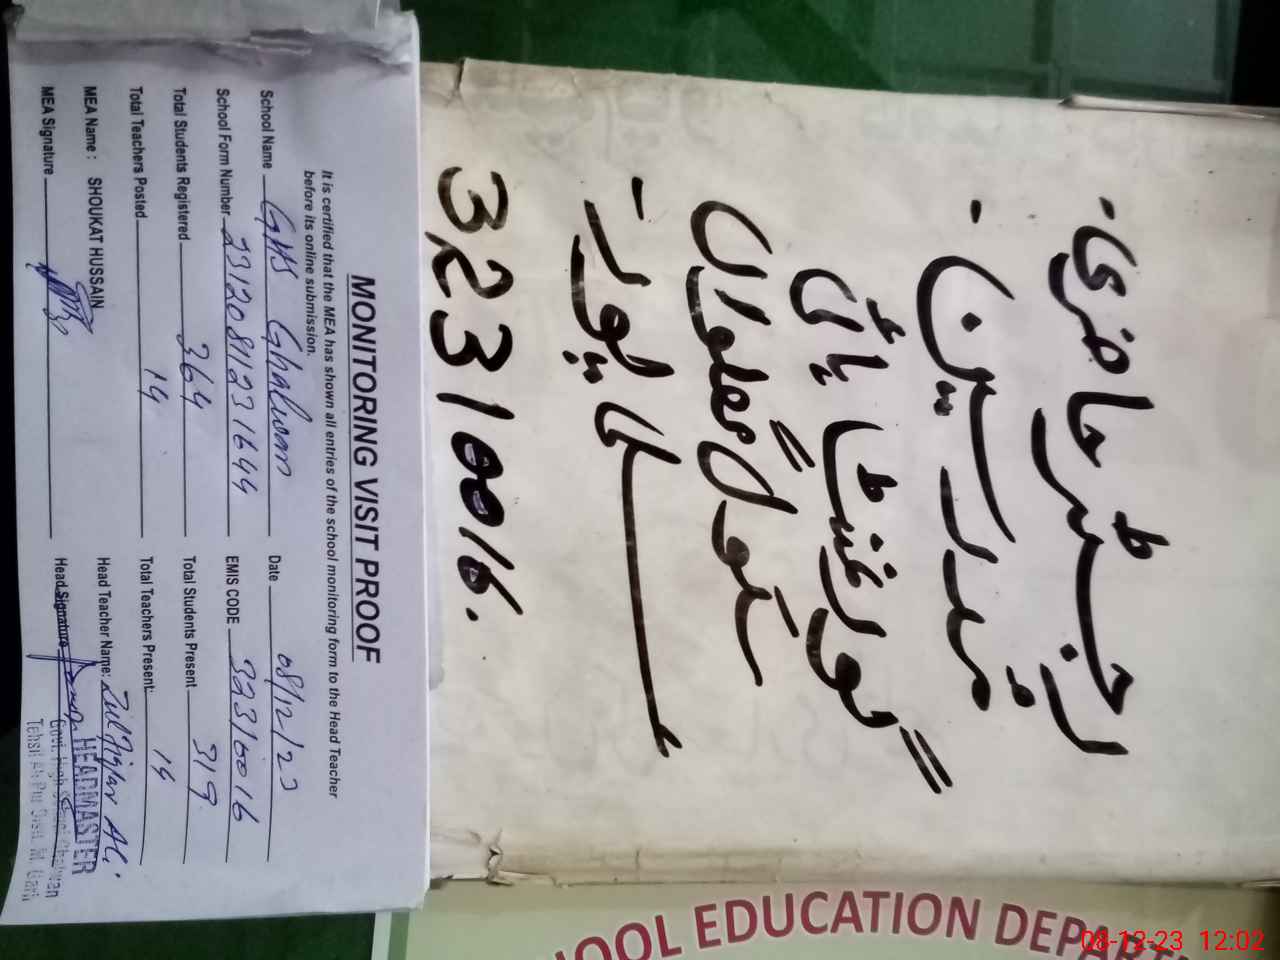 MONITORING VISIT PROOF
It is certified that the MEA has shown all entries of the school monitoring form to the Head Teacher
before its online submission.
School Name GHS Ghalwan Date 08/12/23
School Form Number 23120811231644 EMIS CODE 32310016
Total Students Registered 364 Total Students Present 319
Total Teachers Posted 14 Total Teachers Present: 14
MEA Name : SHOUKAT HUSSAIN Head Teacher Name: Zulfiqar Ali
MEA Signature Head Signature
HEADMASTER
Govt. High School Ghalwan
Tehsil Ali Pur Distt. M. Garh
رجسٹر حاضری۔
مدرسین۔
گورنمنٹ ہائی
سکول گھلواں
علی پور۔
32310016.
OOL EDUCATION DEPART
08-12-23 12:02